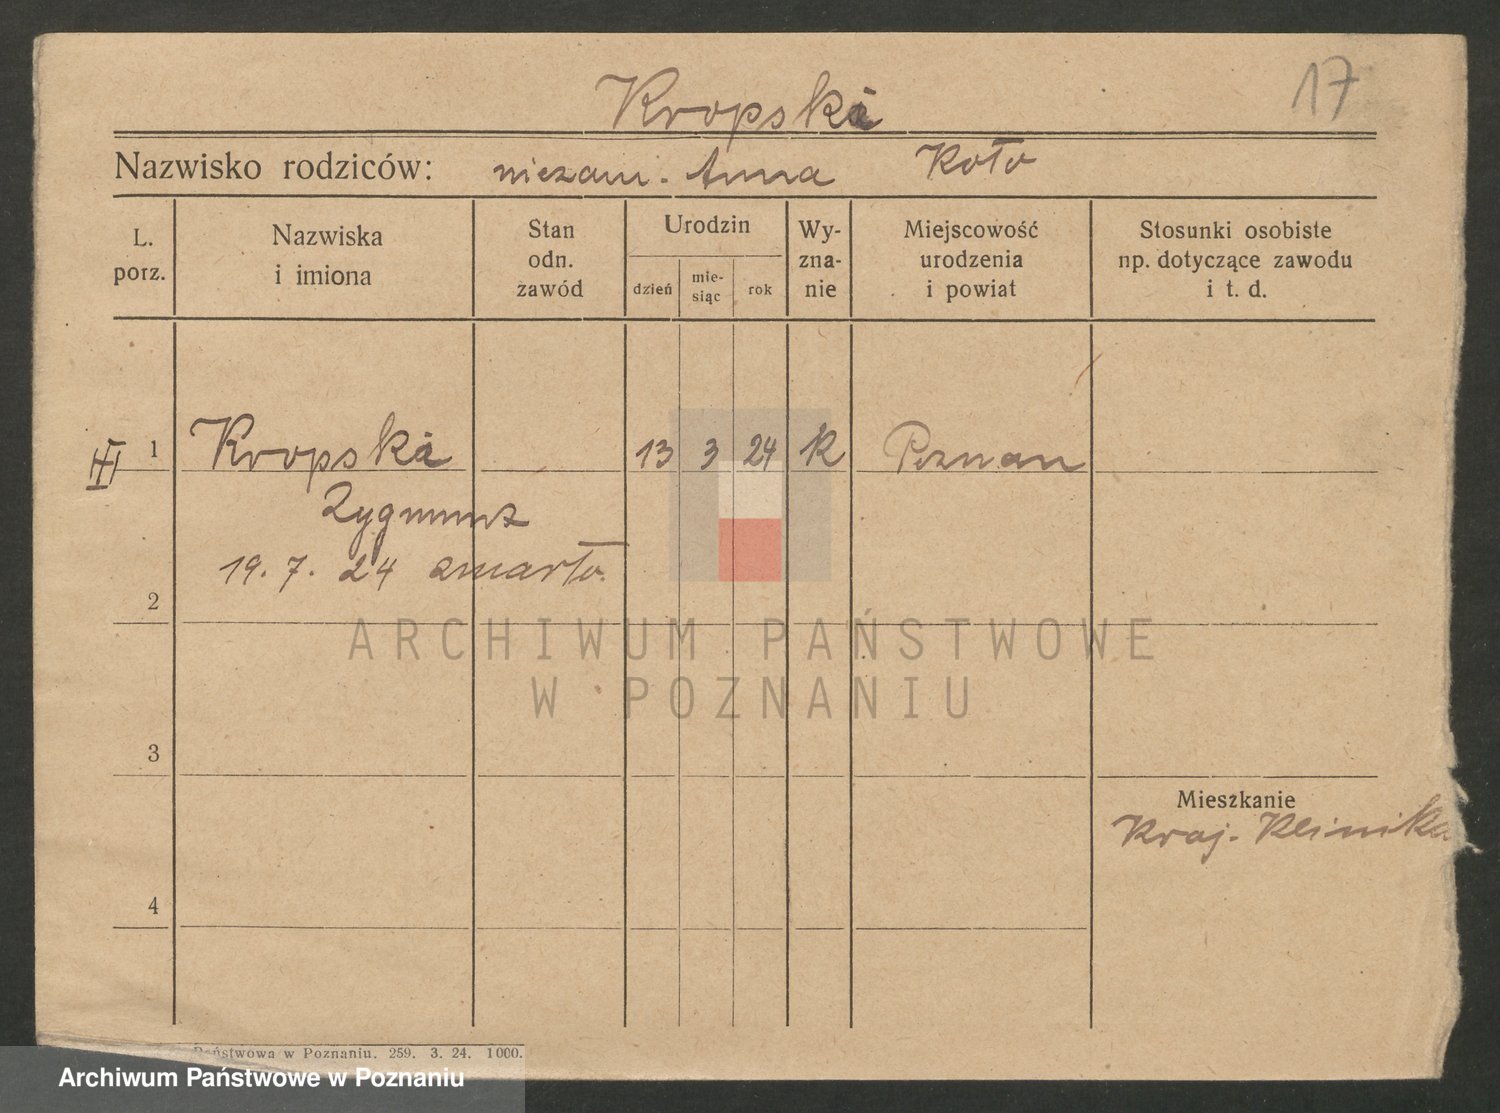 17
Kropski
Nazwisko rodziców: niezam. Anna Koło
L. porz.
Nazwiska i imiona
Stan odn. zawód
Urodzin
dzień
mie- siąc
rok
Wy- zna- nie
Miejscowość urodzenia i powiat
Stosunki osobiste np. dotyczące zawodu i t. d.
III 1 Kropski 13 3 24 k Poznan
Zygmunt
19. 7. 24 zmarło.
2
ARCHIWUM PAŃSTWOWE
W POZNANIU
3
Mieszkanie
Kraj. Klinika
4
Państwowa w Poznaniu. 259. 3. 24. 1000.
Archiwum Państwowe w Poznaniu